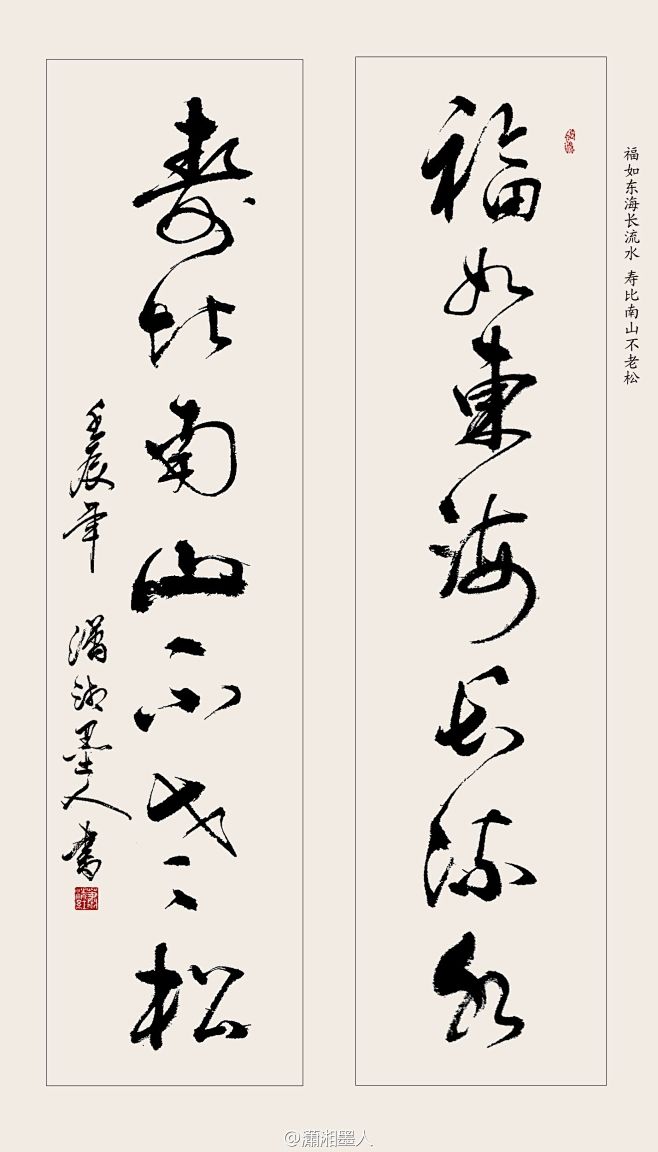 福如东海长流水 寿比南山不老松
福如東海长流水
壽比南山不老松
壬辰年 瀟湘墨人書
@瀟湘墨人